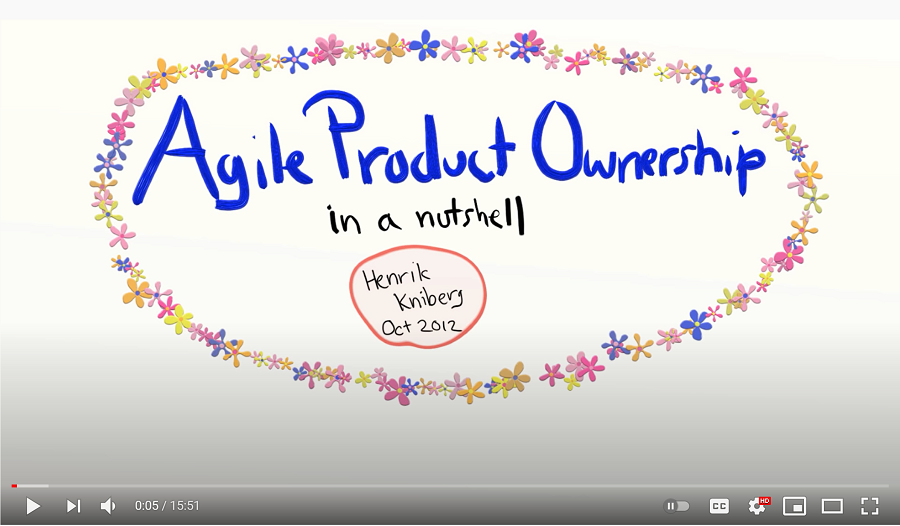 Agile Product Ownership
in a nutshell
Henrik
Kniberg
Oct 2012
0:05 / 15:51
CC
HD